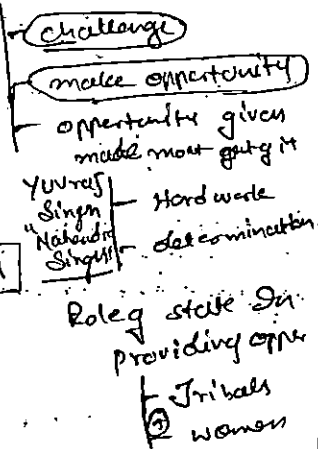 challenge
make oppertunity
oppertunity given
made most out of it
Yuvraj
Singh
Hard work
"Mahendra
Singh"
determination
Role of state in
providing opper
Tribals
women